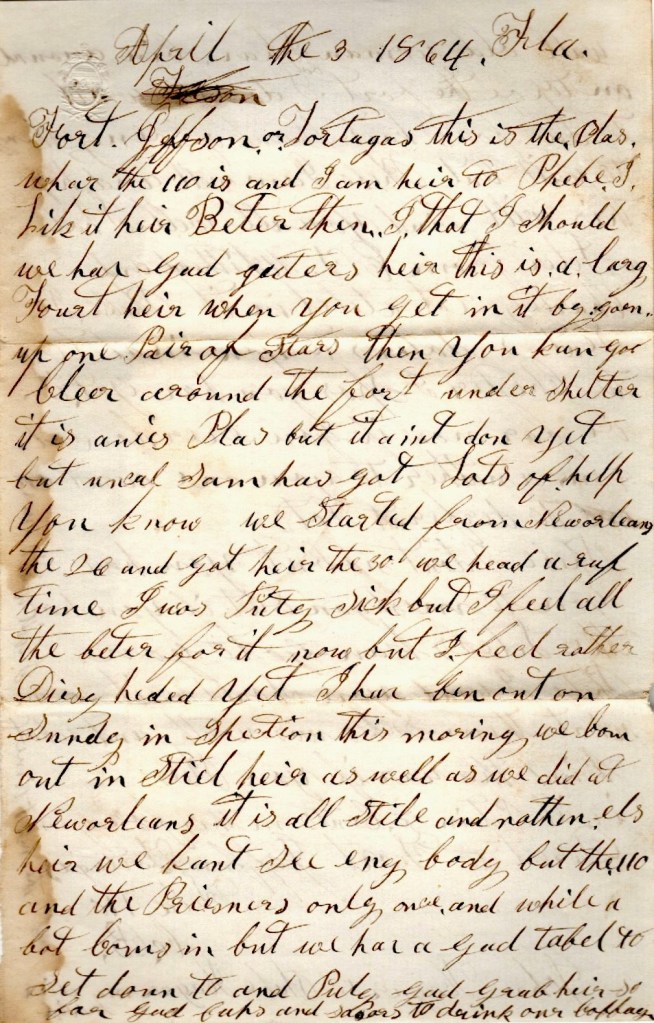 April the 3 1864. Fla.
Fort. Jeffson. or Tortugas this is the. Plas.
whar the 110 is and I am heir to Phebe. I.
Lik it heir Beter then. I. that I should
we har Gud quters heir this is. a. Larg
Fourt heir when you get in it by. goen..
up one Pair of Stars then you kan goe
cleer around the fort under shelter
it is a nies Plas but it aint don yet
but uncal Sam has got Lots of. help
you know we Started from Neworleans
the 26 and got heir the 30 we head a ruf
time I was Puty Sick but I feel all
the beter for it now but I. feel rather
Diesy heded yet I har ben out on
Sundy in Spection this moring we com
out in Stiel heir as well as we did at
Neworleans it is all Stile and nothen. els
heir we kant See eny body but the. 110
and the Priesners only once. and while a
bot coms in but we har a gud tabel to
Set down to and Puty gud grub heir so
far gud cups and to drink our